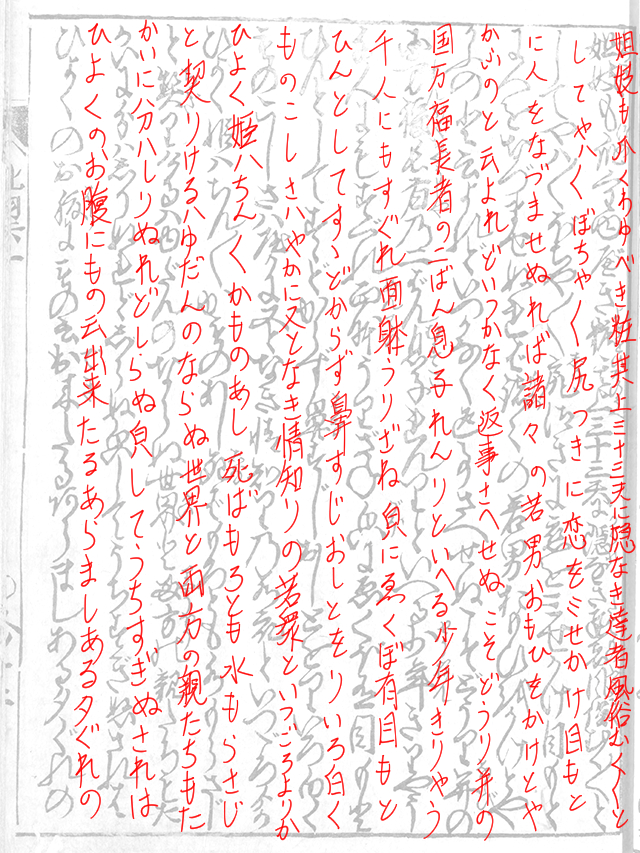 妲妃もかくわゆべき粧其上三十三天に隠なき達者風俗むく〱と
してやハ〱ぼちゃ〱尻つきに恋をミせかけ目もと
に人をなづませぬれば諸々の若男おもひをかけとや
かふのと云よれどいつかなく返事さへせぬこそどうり并の
国万福長者の二ばん息子れんりといへる少年きりやう
千人にもすぐれ面躰うりざね㒵にゑくぼ有目もと
ひんとしてすゝどからず鼻すじおしとをりいろ白く
ものこしさハやかに又となき情知りの若衆といつごろよりか
ひよく姫ハちんくかものあし死ばもろとも水もらさじ
と契りけるハゆだんのならぬ世界と両方の親たちもた
かいに分ハしりぬれどしらぬ㒵してうちすぎぬされは
ひよくのお腹にもの云出来たるあらましある夕ぐれの